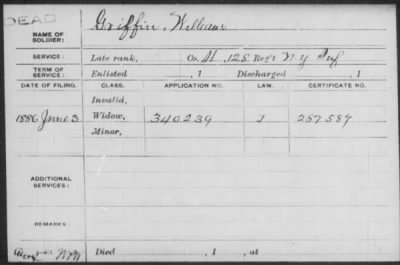 DEAD
NAME OF SOLDIER: Griffin, William
SERVICE: Late rank, Co. H, 128 Reg't N.Y. Inf
TERM OF SERVICE: Enlisted , 1 Discharged , 1
DATE OF FILING. CLASS. APPLICATION NO. LAW. CERTIFICATE NO.
Invalid,
1886 June 3 Widow, 340239 J 257587
Minor,
ADDITIONAL SERVICES:
REMARKS:
Died , 1 , at